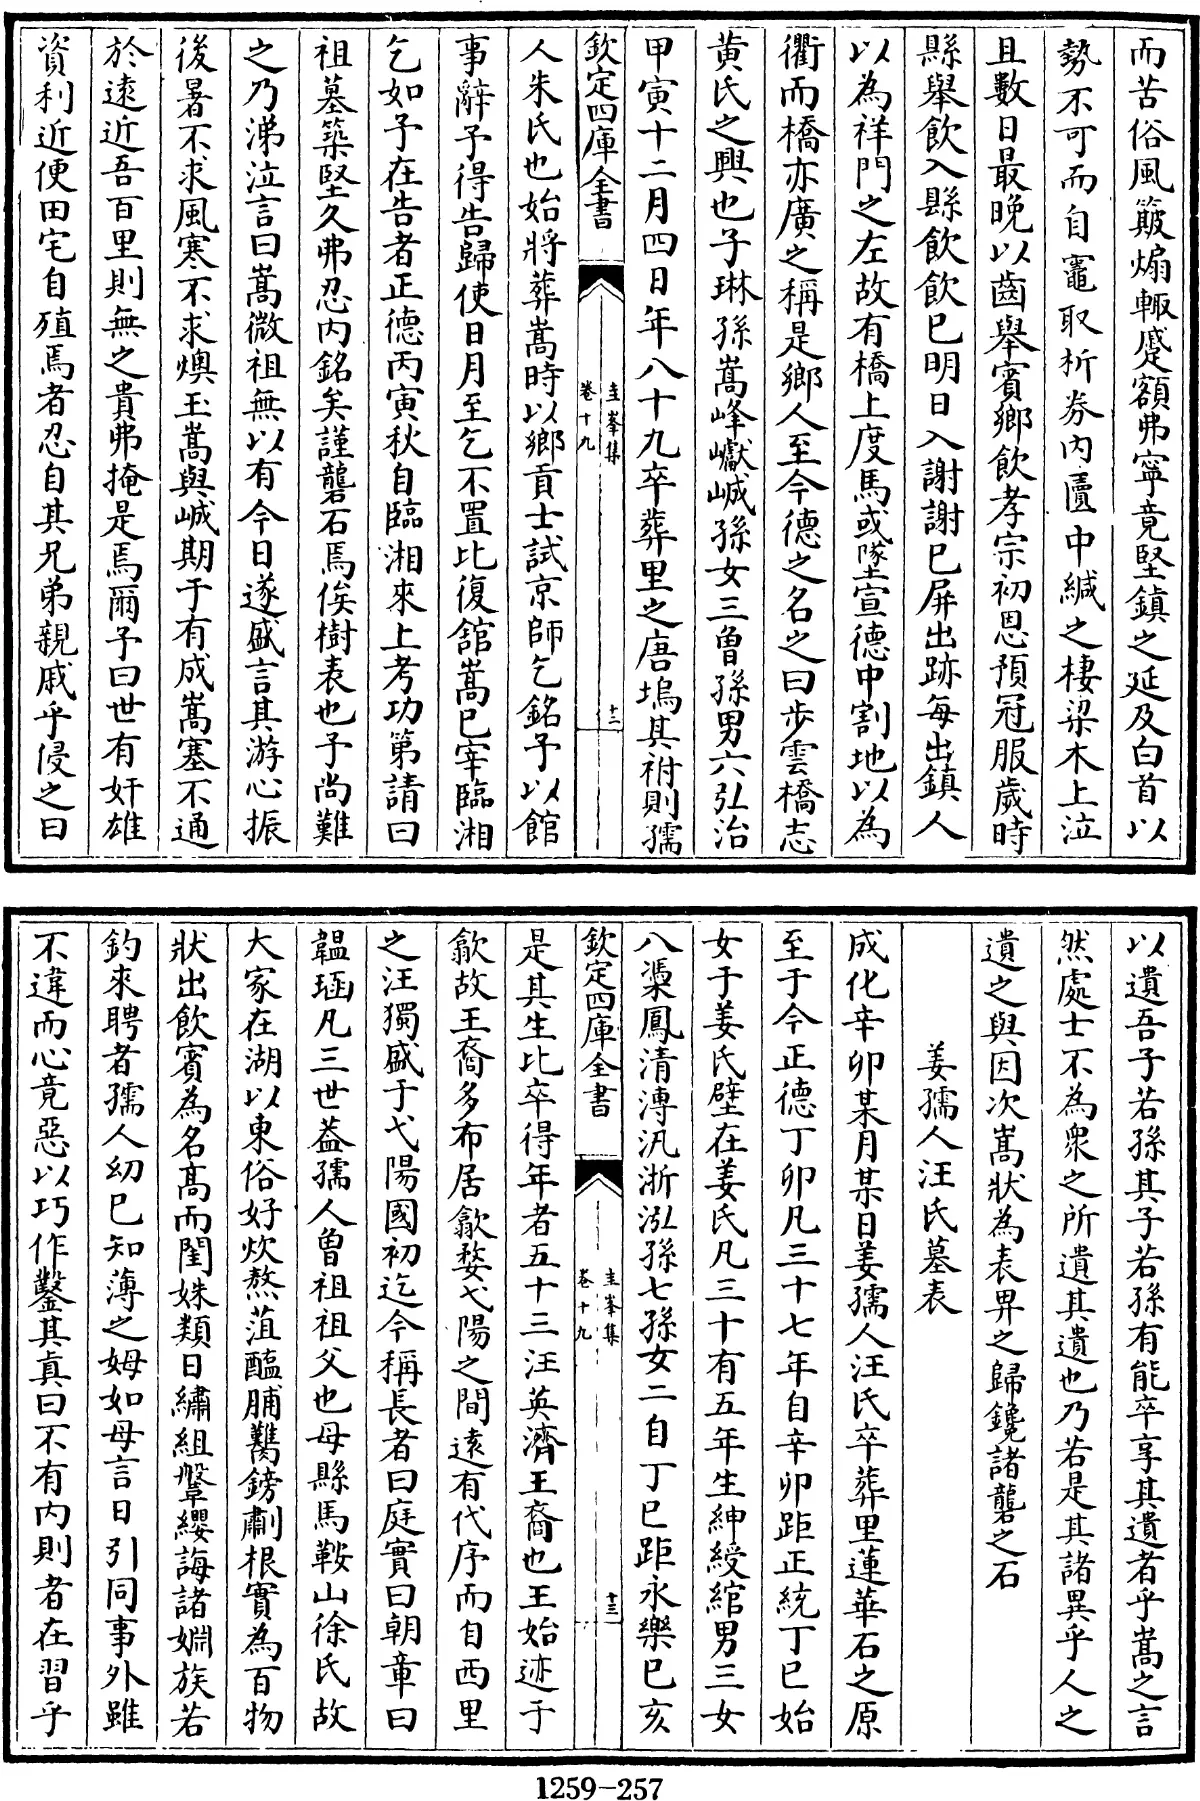 而苦俗風簸煽輙蹙額弗寧竟堅鎮之延及白首以
勢不可而自竈取析券内匵中緘之棲梁木上泣
且數日最晚以齒舉賓鄉飲孝宗初恩預冠服歲時
縣舉飲入縣飲飲已明日入謝謝已屏出跡每出鎮人
以為祥門之左故有橋上度馬或墜宣德中割地以為
衢而橋亦廣之稱是鄉人至今德之名之曰步雲橋志
黄氏之興也子琳孫嵩峰巘峸孫女三曽孫男六弘治
甲寅十二月四日年八十九卒葬里之唐塢其祔則孺
欽定四庫全書
圭峯集
卷十九
十二
人朱氏也始將葬嵩時以鄉貢士試京師乞銘予以館
事辭予得告歸使日月至乞不置比復舘嵩已宰臨湘
乞如予在告者正德丙寅秋自臨湘來上考功第請曰
祖墓築堅久弗忍内銘矣謹礱石焉俟樹表也予尚難
之乃涕泣言曰嵩微祖無以有今日遂盛言其游心振
後暑不求風寒不求燠玉嵩與峸期于有成嵩塞不通
於逺近吾百里則無之貴弗掩是焉爾予曰世有奸雄
資利近便田宅自殖焉者忍自其兄弟親戚乎侵之曰
以遺吾子若孫其子若孫有能卒享其遺者乎嵩之言
然處士不為衆之所遺其遺也乃若是其諸異乎人之
遺之與因次嵩狀為表畀之歸鑱諸礱之石
姜孺人汪氏墓表
成化辛卯某月某日姜孺人汪氏卒葬里蓮華石之原
至于今正德丁卯凡三十七年自辛卯距正統丁巳始
女于姜氏壁在姜氏凡三十有五年生紳綬綰男三女
八澩鳳清漙汎浙泓孫七孫女二自丁巳距永樂己亥
欽定四庫全書
圭峯集
卷十九
十三
是其生比卒得年者五十三汪英濟王裔也王始迹于
歙故王裔多布居歙婺弋陽之間逺有代序而自西里
之汪獨盛于弋陽國初迄今稱長者曰庭實曰朝章曰
韞珤凡三世葢孺人曽祖祖父也母縣馬鞍山徐氏故
大家在湖以東俗好炊熬菹醢脯鷍鎊劘根實為百物
狀出飲賓為名髙而閨姝類日繡組鞶纓誨諸婣族若
釣來聘者孺人幼已知薄之姆如母言日引同事外雖
不違而心竟惡以巧作鑿其真曰不有内則者在習乎
1259-257